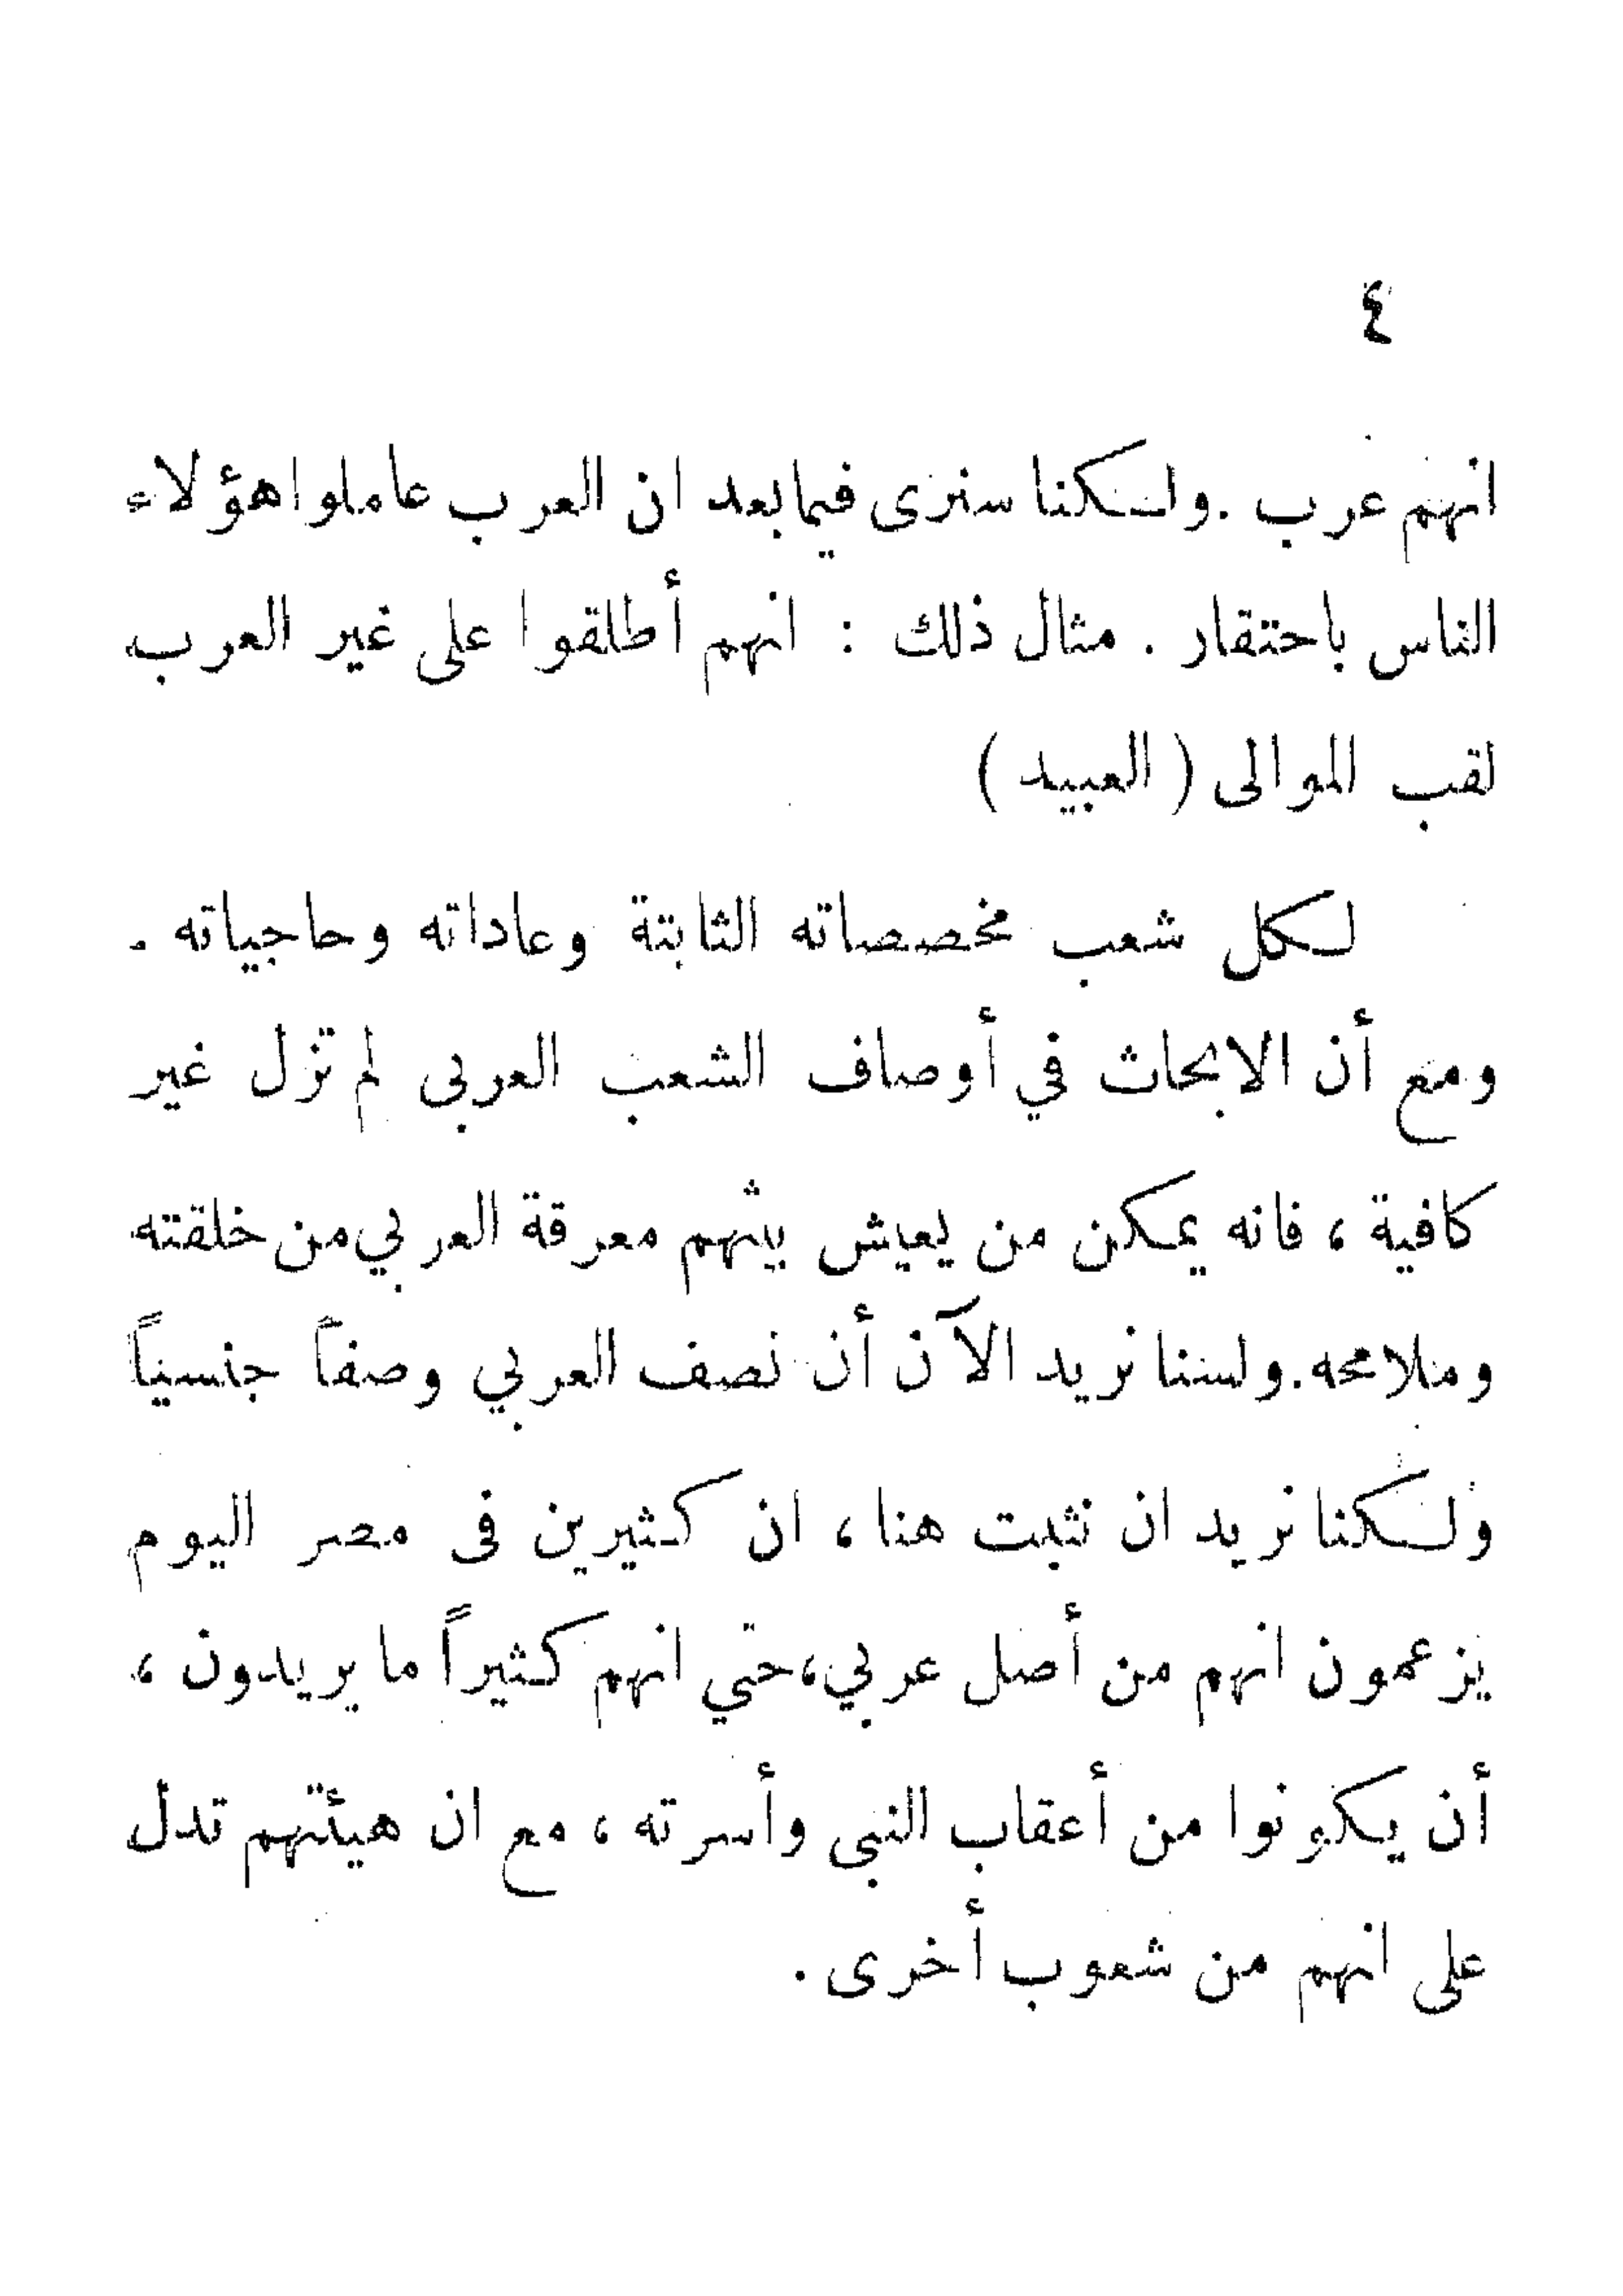 ٤
انهم عرب . ولكننا سنرى فيما بعد ان العرب عاملوا هؤلاء
الناس باحتقار . مثال ذلك : انهم أطلقوا على غير العرب
لقب الموالى ( العبيد )
لكل شعب مخصصاته الثابتة وعاداته وحاجياته .
ومع أن الابحاث في أوصاف الشعب العربى لم تزل غير
كافية ، فانه يمكن من يعيش بينهم معرقة العربي من خلقته
وملامحه . ولسنا نريد الآن أن نصف العربي وصفاً جنسياً
ولكننا نريد ان نثبت هنا ، ان كثيرين فى مصر اليوم
يزعمون انهم من أصل عربي ، حتي انهم كثيراً ما يريدون ،
أن يكونوا من أعقاب النبى وأسرته ، مع ان هيئتهم تدل
على انهم من شعوب أخرى .